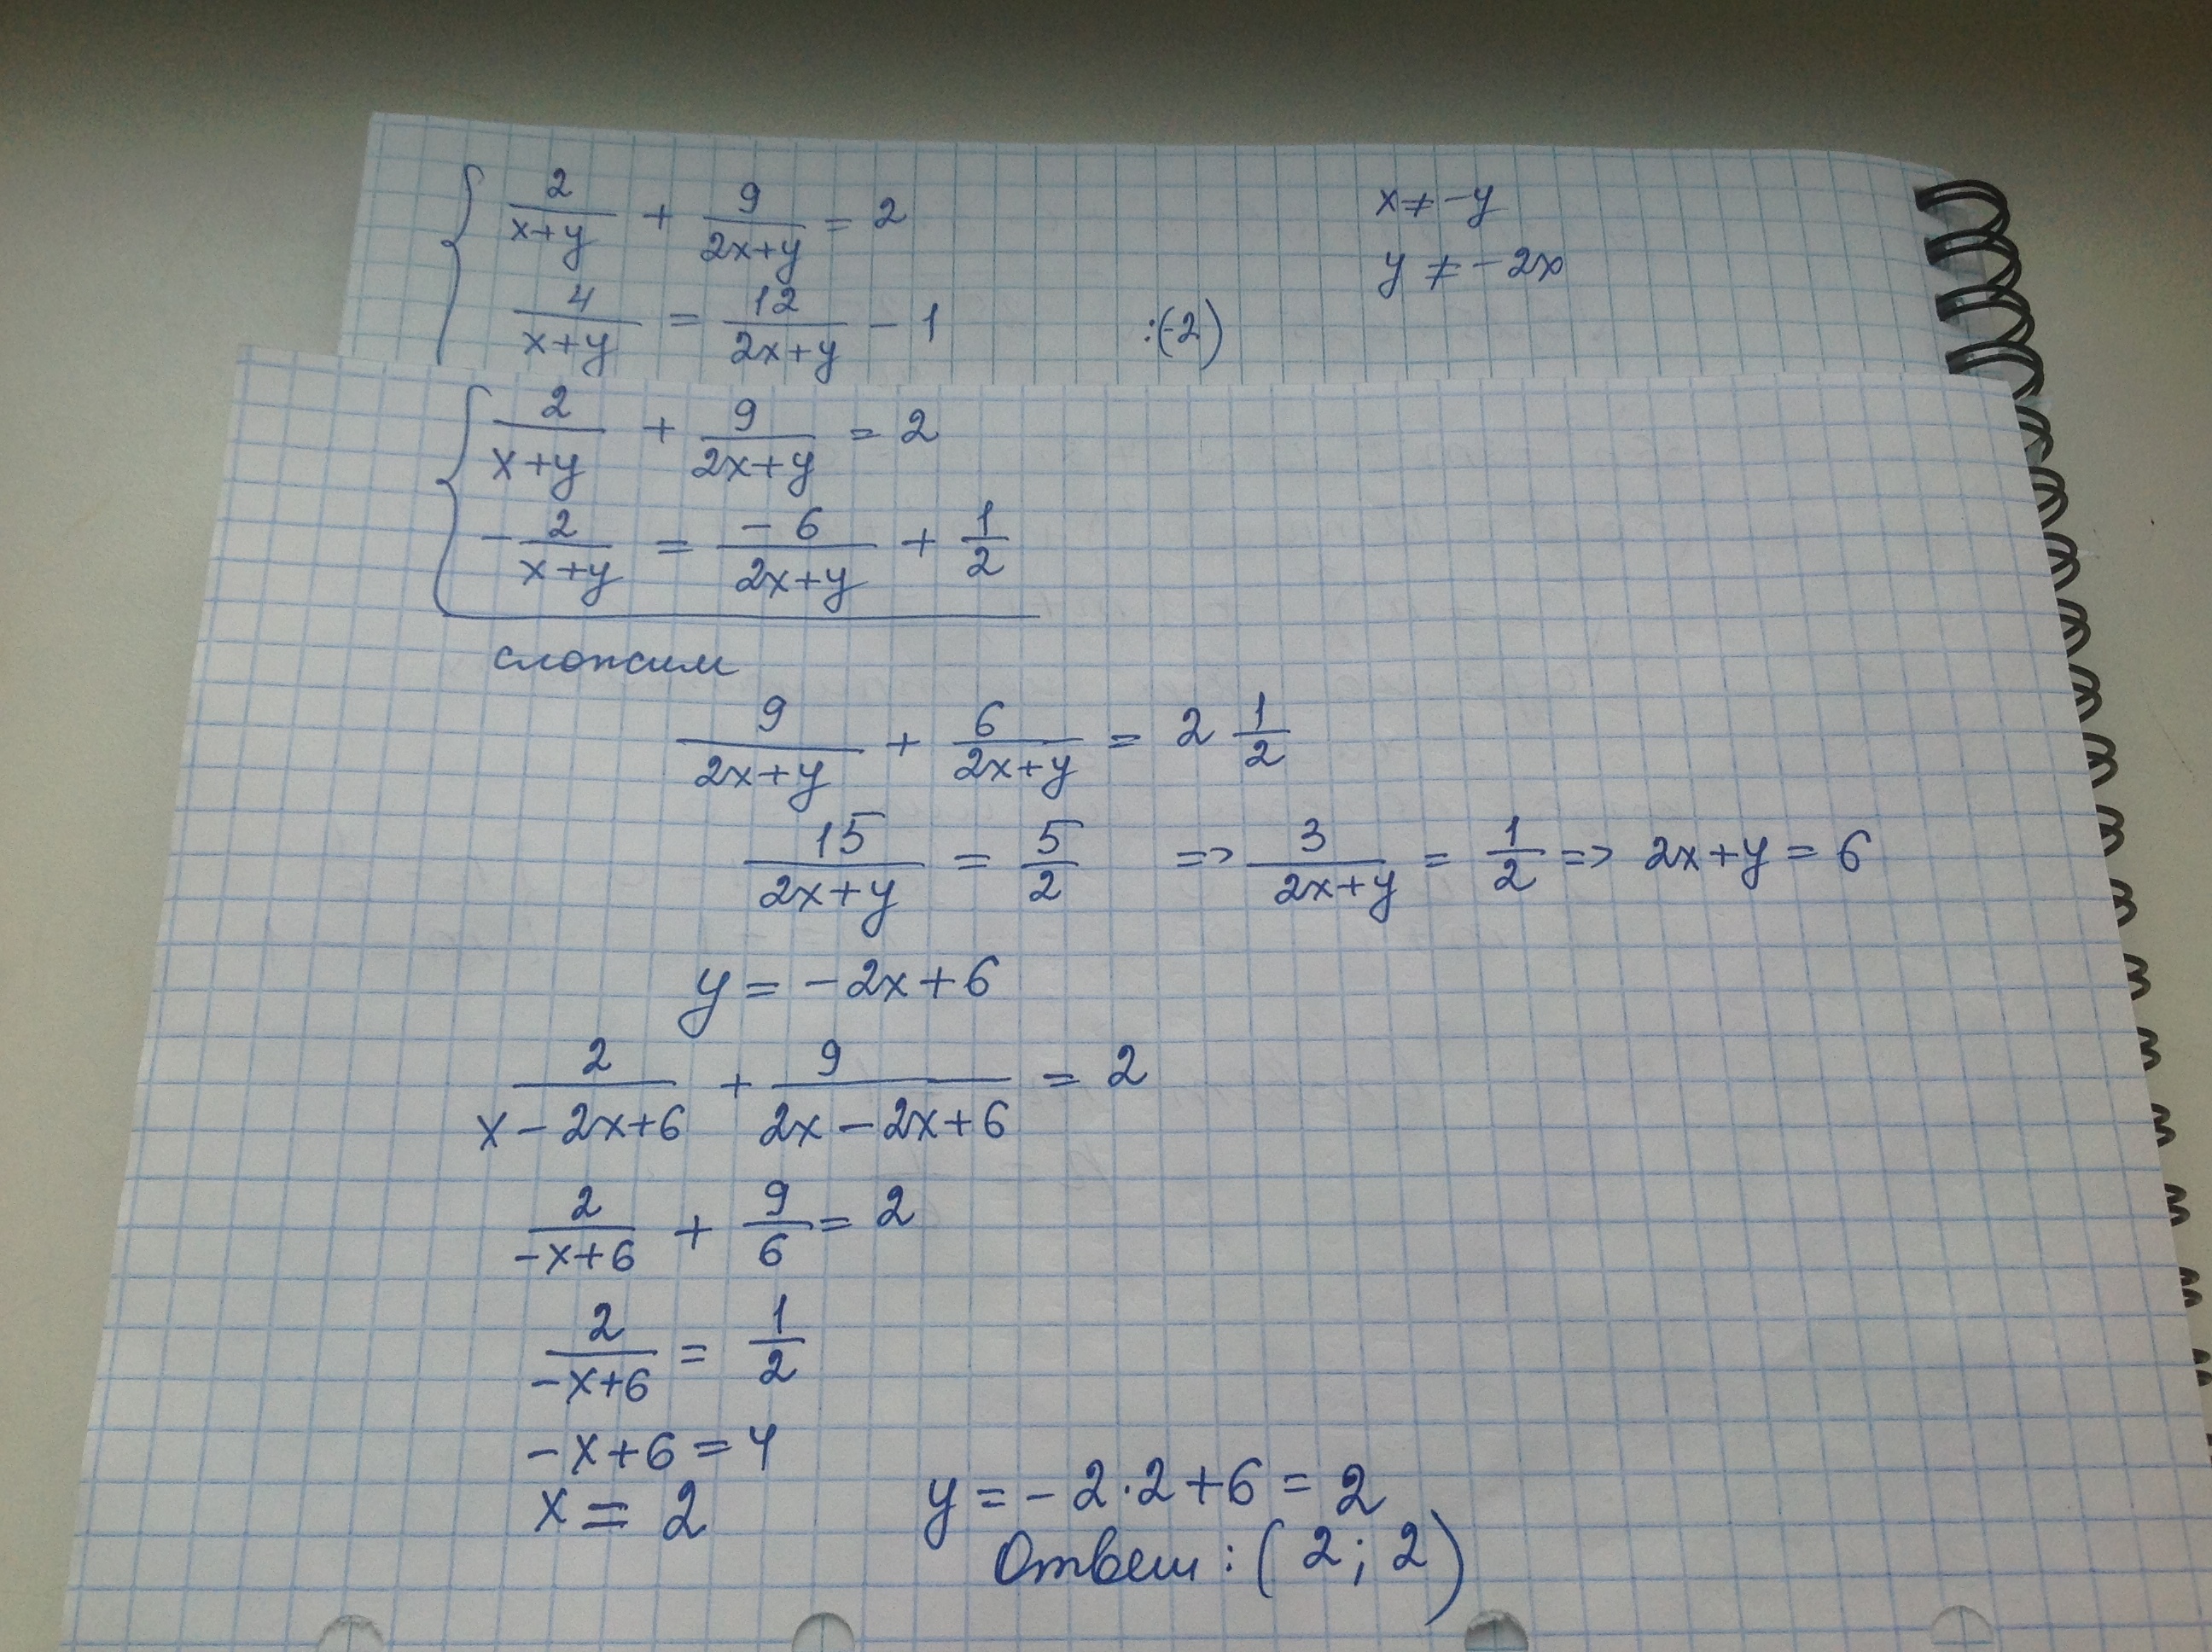 { 2/(x+y) + 9/(2x+y) = 2
x ≠ -y
y ≠ -2x
4/(x+y) = 12/(2x+y) - 1 :(-2)
{ 2/(x+y) + 9/(2x+y) = 2
-2/(x+y) = -6/(2x+y) + 1/2
сложим
9/(2x+y) + 6/(2x+y) = 2 1/2
15/(2x+y) = 5/2 => 3/(2x+y) = 1/2 => 2x+y = 6
y = -2x+6
2/(x-2x+6) + 9/(2x-2x+6) = 2
2/(-x+6) + 9/6 = 2
2/(-x+6) = 1/2
-x+6 = 4
x = 2 y = -2·2+6 = 2
Ответ: (2; 2)